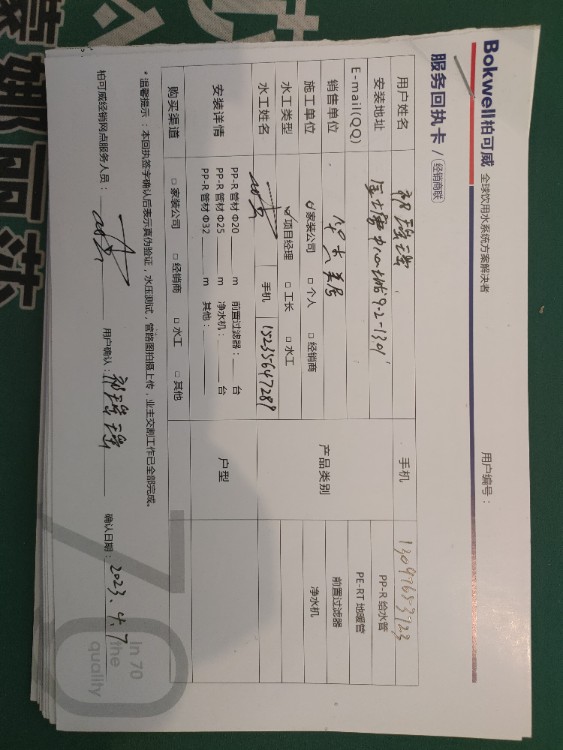 Bokwell柏可威 全球饮用水系统方案解决者
服务回执卡 / 经销商联
用户编号：
用户姓名 祁瑶瑶 手机 13097653123
安装地址 9-2-1301
E-mail(QQ)
销售单位 华杰美居
施工单位 ☑家装公司 □个人 □经销商
水工类型 ☑项目经理 □工长 □水工
水工姓名 手机 15235647289
产品类别
PP-R 给水管
PE-RT 地暖管
前置过滤器
净水机
安装详情
PP-R 管材 Φ20 m 前置过滤器：台
PP-R 管材 Φ25 m 净水机：台
PP-R 管材 Φ32 m 其他：
户型
购买渠道 □家装公司 □经销商 □水工 □其他
*温馨提示：本回执签字确认后表示真伪验证，水压测试，管路图拍摄上传，业主交割工作已全部完成。
柏可威经销网点服务人员： 用户确认：祁瑶瑶 确认日期：2023.4.7
70
In 70
the
quality